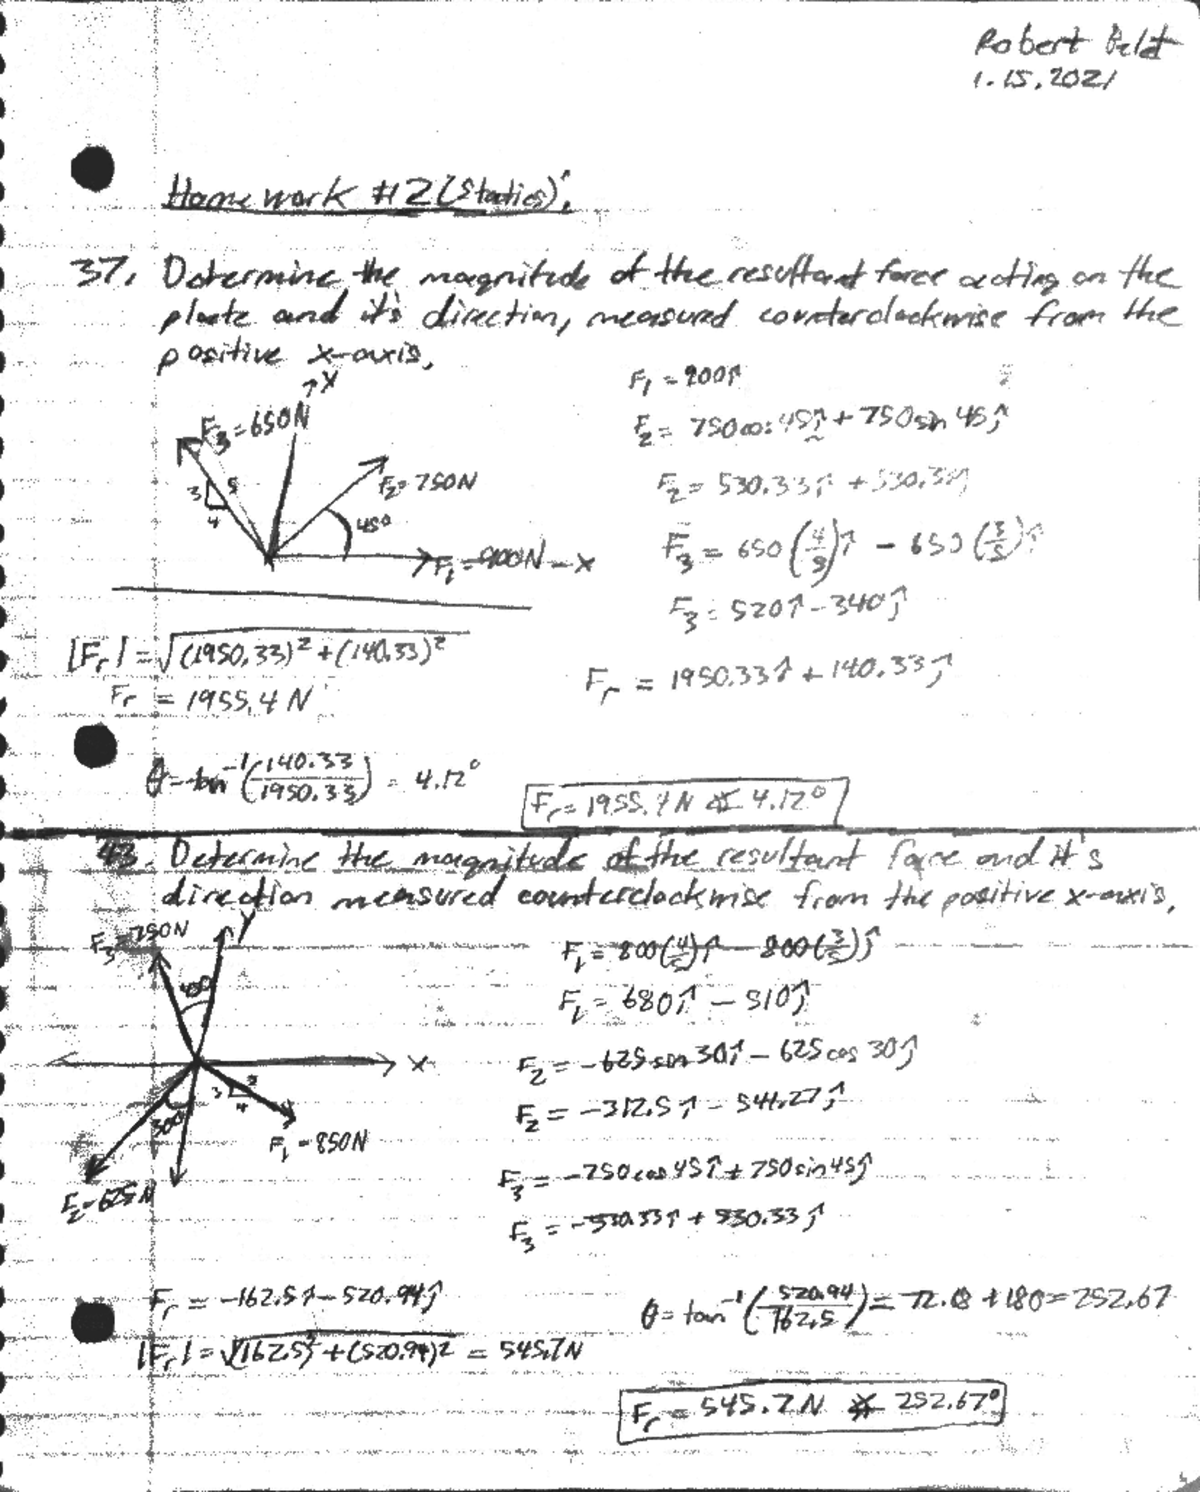 Robert Belt
1.15.2021
Homework #2 (Statics):
37. Determine the magnitude of the resultant force acting on the
plate and it's direction, measured counterclockwise from the
positive x-axis.
F₁ = 900î
F₂ = 750cos 45î + 750sin 45ĵ
F₂ = 530.33î + 530.33ĵ
F₃ = 650(4/5)î - 650(3/5)ĵ
F₃ = 520î - 340ĵ
Fᵣ = 1950.33î + 140.33ĵ
Y
F₃ = 650N
3 5
4
F₂ = 750N
45°
F₁ = 900N - X
|Fᵣ| = √(1950.33)² + (140.33)²
Fᵣ = 1955.4 N
θ = tan⁻¹(140.33/1950.33) = 4.12°
Fᵣ = 1955.4 N ∡ 4.12°
43. Determine the magnitude of the resultant force and it's
direction measured counterclockwise from the positive x-axis.
F₃ = 750N
Y
45°
X
3 5
4
30°
F₁ = 850N
F₂ = 625N
F₁ = 800(4/5)î - 800(3/5)ĵ
F₁ = 680î - 510ĵ
F₂ = -625 sin 30î - 625 cos 30ĵ
F₂ = -312.5î - 541.27ĵ
F₃ = -750 cos 45î + 750 sin 45ĵ
F₃ = -530.33î + 530.33ĵ
Fᵣ = -162.5î - 520.94ĵ
|Fᵣ| = √(162.5)² + (520.94)² = 545.7 N
θ = tan⁻¹(520.94/162.5) = 72.68 + 180 = 252.67
Fᵣ = 545.7 N ∡ 252.67°